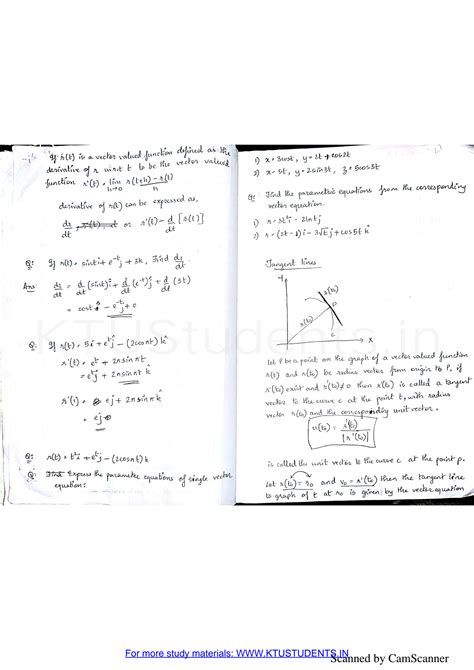 If r(t) is a vector valued function defined as the
derivative of r w.r.t t to be the vector valued
function r'(t) = lim h→0 r(t+h) - r(t) / h
derivative of r(t) can be expressed as,
dr/dt or r'(t) = d/dt [r(t)]
Q: If r(t) = sint i + e^-t j + 3k, Find dr/dt
Ans: dr/dt = d/dt (sint)i + d/dt (e^-t)j + d/dt (3t)
= cost i - e^-t j + 0
Q: If r(t) = 5i + e^t j - (2cosπt) k
r'(t) = e^t + 2π sinπt
= e^t j + 2π sinπt k
r'(1) = ej + 2π sinπ k
= ej
Q: r(t) = t²i + e^t j - (2cosπt) k
Q: Express the parametric equations of single vector
equation:
1) x = 3cost, y = 2t + cos2t
2) x = 5t, y = 2sin3t, z = 5cos3t
Q: Find the parametric equations from the corresponding
vector equation.
1) r = 3t²i - 2lnt j
2) r = (2t-1)i - 3√t j + cos5t k
Tangent lines
y
r'(t0)
P
r(t0)
c
x
Let P be a point on the graph of a vector valued function
r(t) and r(t0) be radius vector from origin to P, if
r'(t0) exist and r'(t0) ≠ 0 then r'(t0) is called a tangent
vector to the curve c at the point t0 with radius
vector r(t0) and the corresponding unit vector.
u(t0) = r'(t0) / |r'(t0)|
is called the unit vector to the curve c at the point p.
Let r(t0) = r0 and v0 = r'(t0) then the tangent line
to graph of t at r0 is given by the vector equation
KTUStudents.in
For more study materials: WWW.KTUSTUDENTS.IN
Scanned by CamScanner